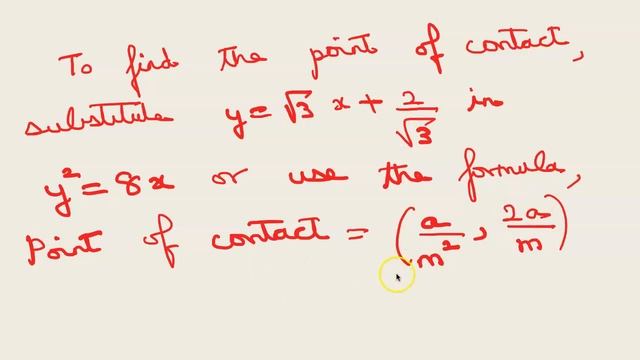 To find the point of contact,
substitute y = √3 x + 2/√3 in
y² = 8x or use the formula,
Point of contact = (a/m², 2a/m)